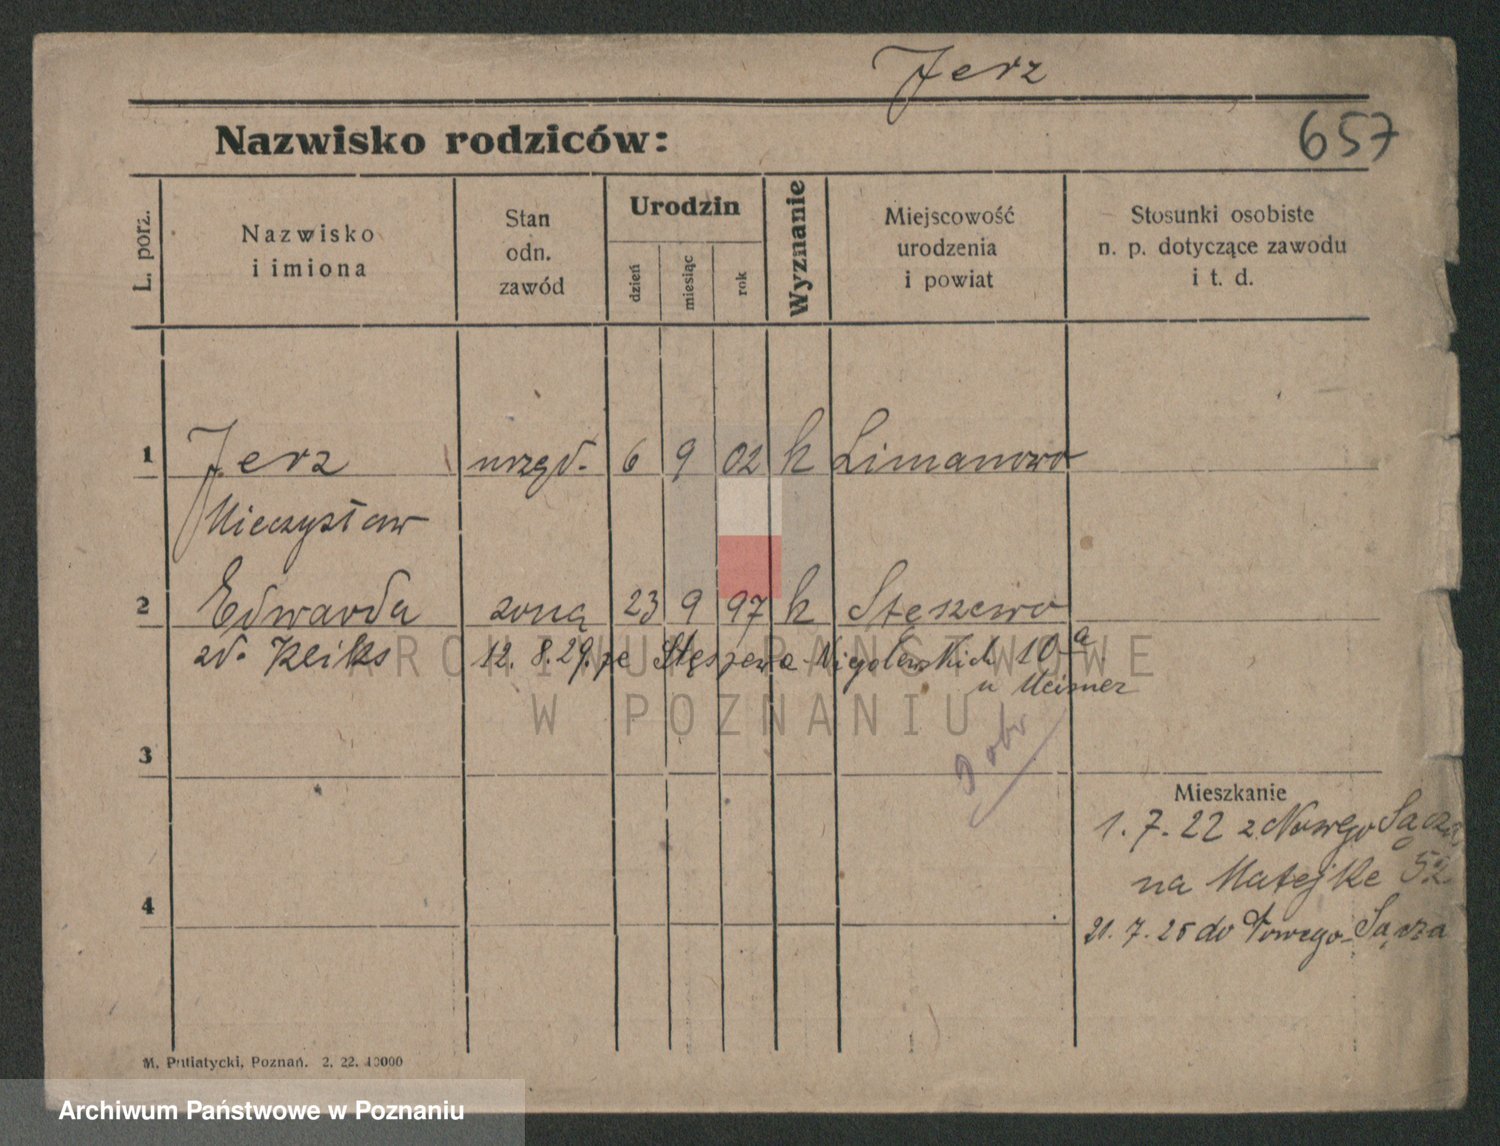 Jerz
657
Nazwisko rodziców:
L. porz.
Nazwisko
i imiona
Stan
odn.
zawód
Urodzin
dzień
miesiąc
rok
Wyznanie
Miejscowość
urodzenia
i powiat
Stosunki osobiste
n. p. dotyczące zawodu
i t. d.
1 Jerz urzęd. 6 9 02 k Limanowo
Mieczysław
2 Edwarda żona 23 9 97 k Stęszewo
zd. Reiks 12. 8. 29. ze Stęszewa Niegolewskich 10a
u
ARCHIWUM PAŃSTWOWE
W POZNANIU
3
Mieszkanie
1. 7. 22 z Nowego Sącza
na Matejke 52
4
21. 7. 25 do Nowego-Sącza
M. Putiatycki, Poznań. 2. 22. 10000
Archiwum Państwowe w Poznaniu